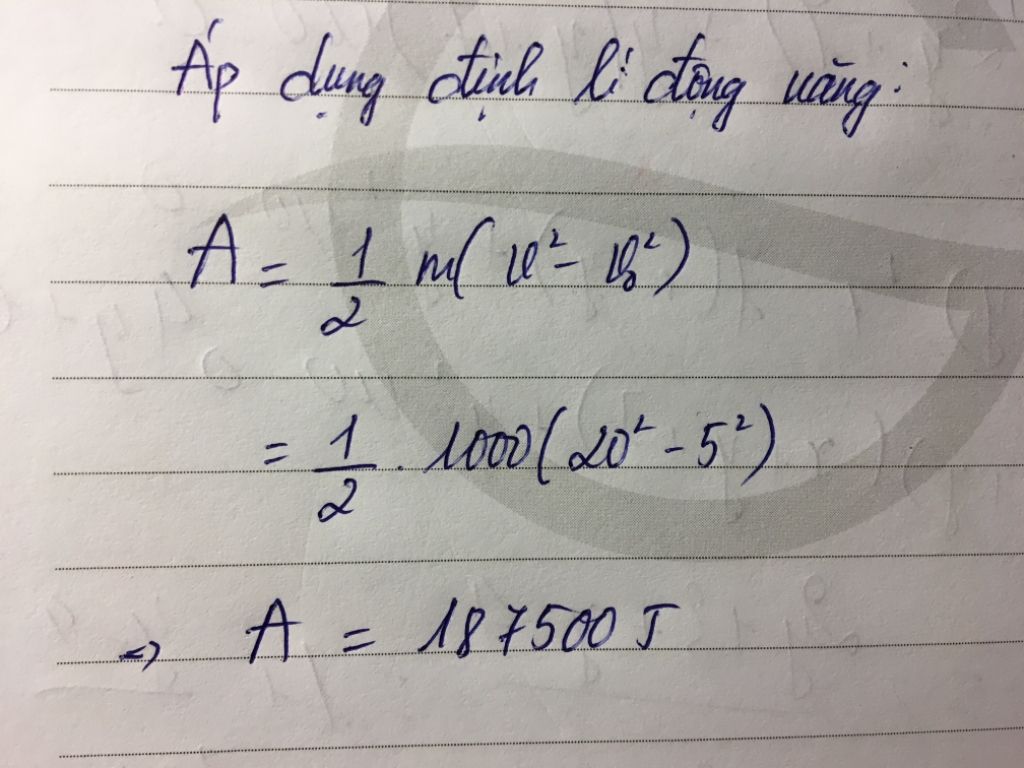 Áp dụng định lí động năng:
A = 1/2 m(v² - v₀²)
= 1/2 . 1000(20² - 5²)
=> A = 187500 J